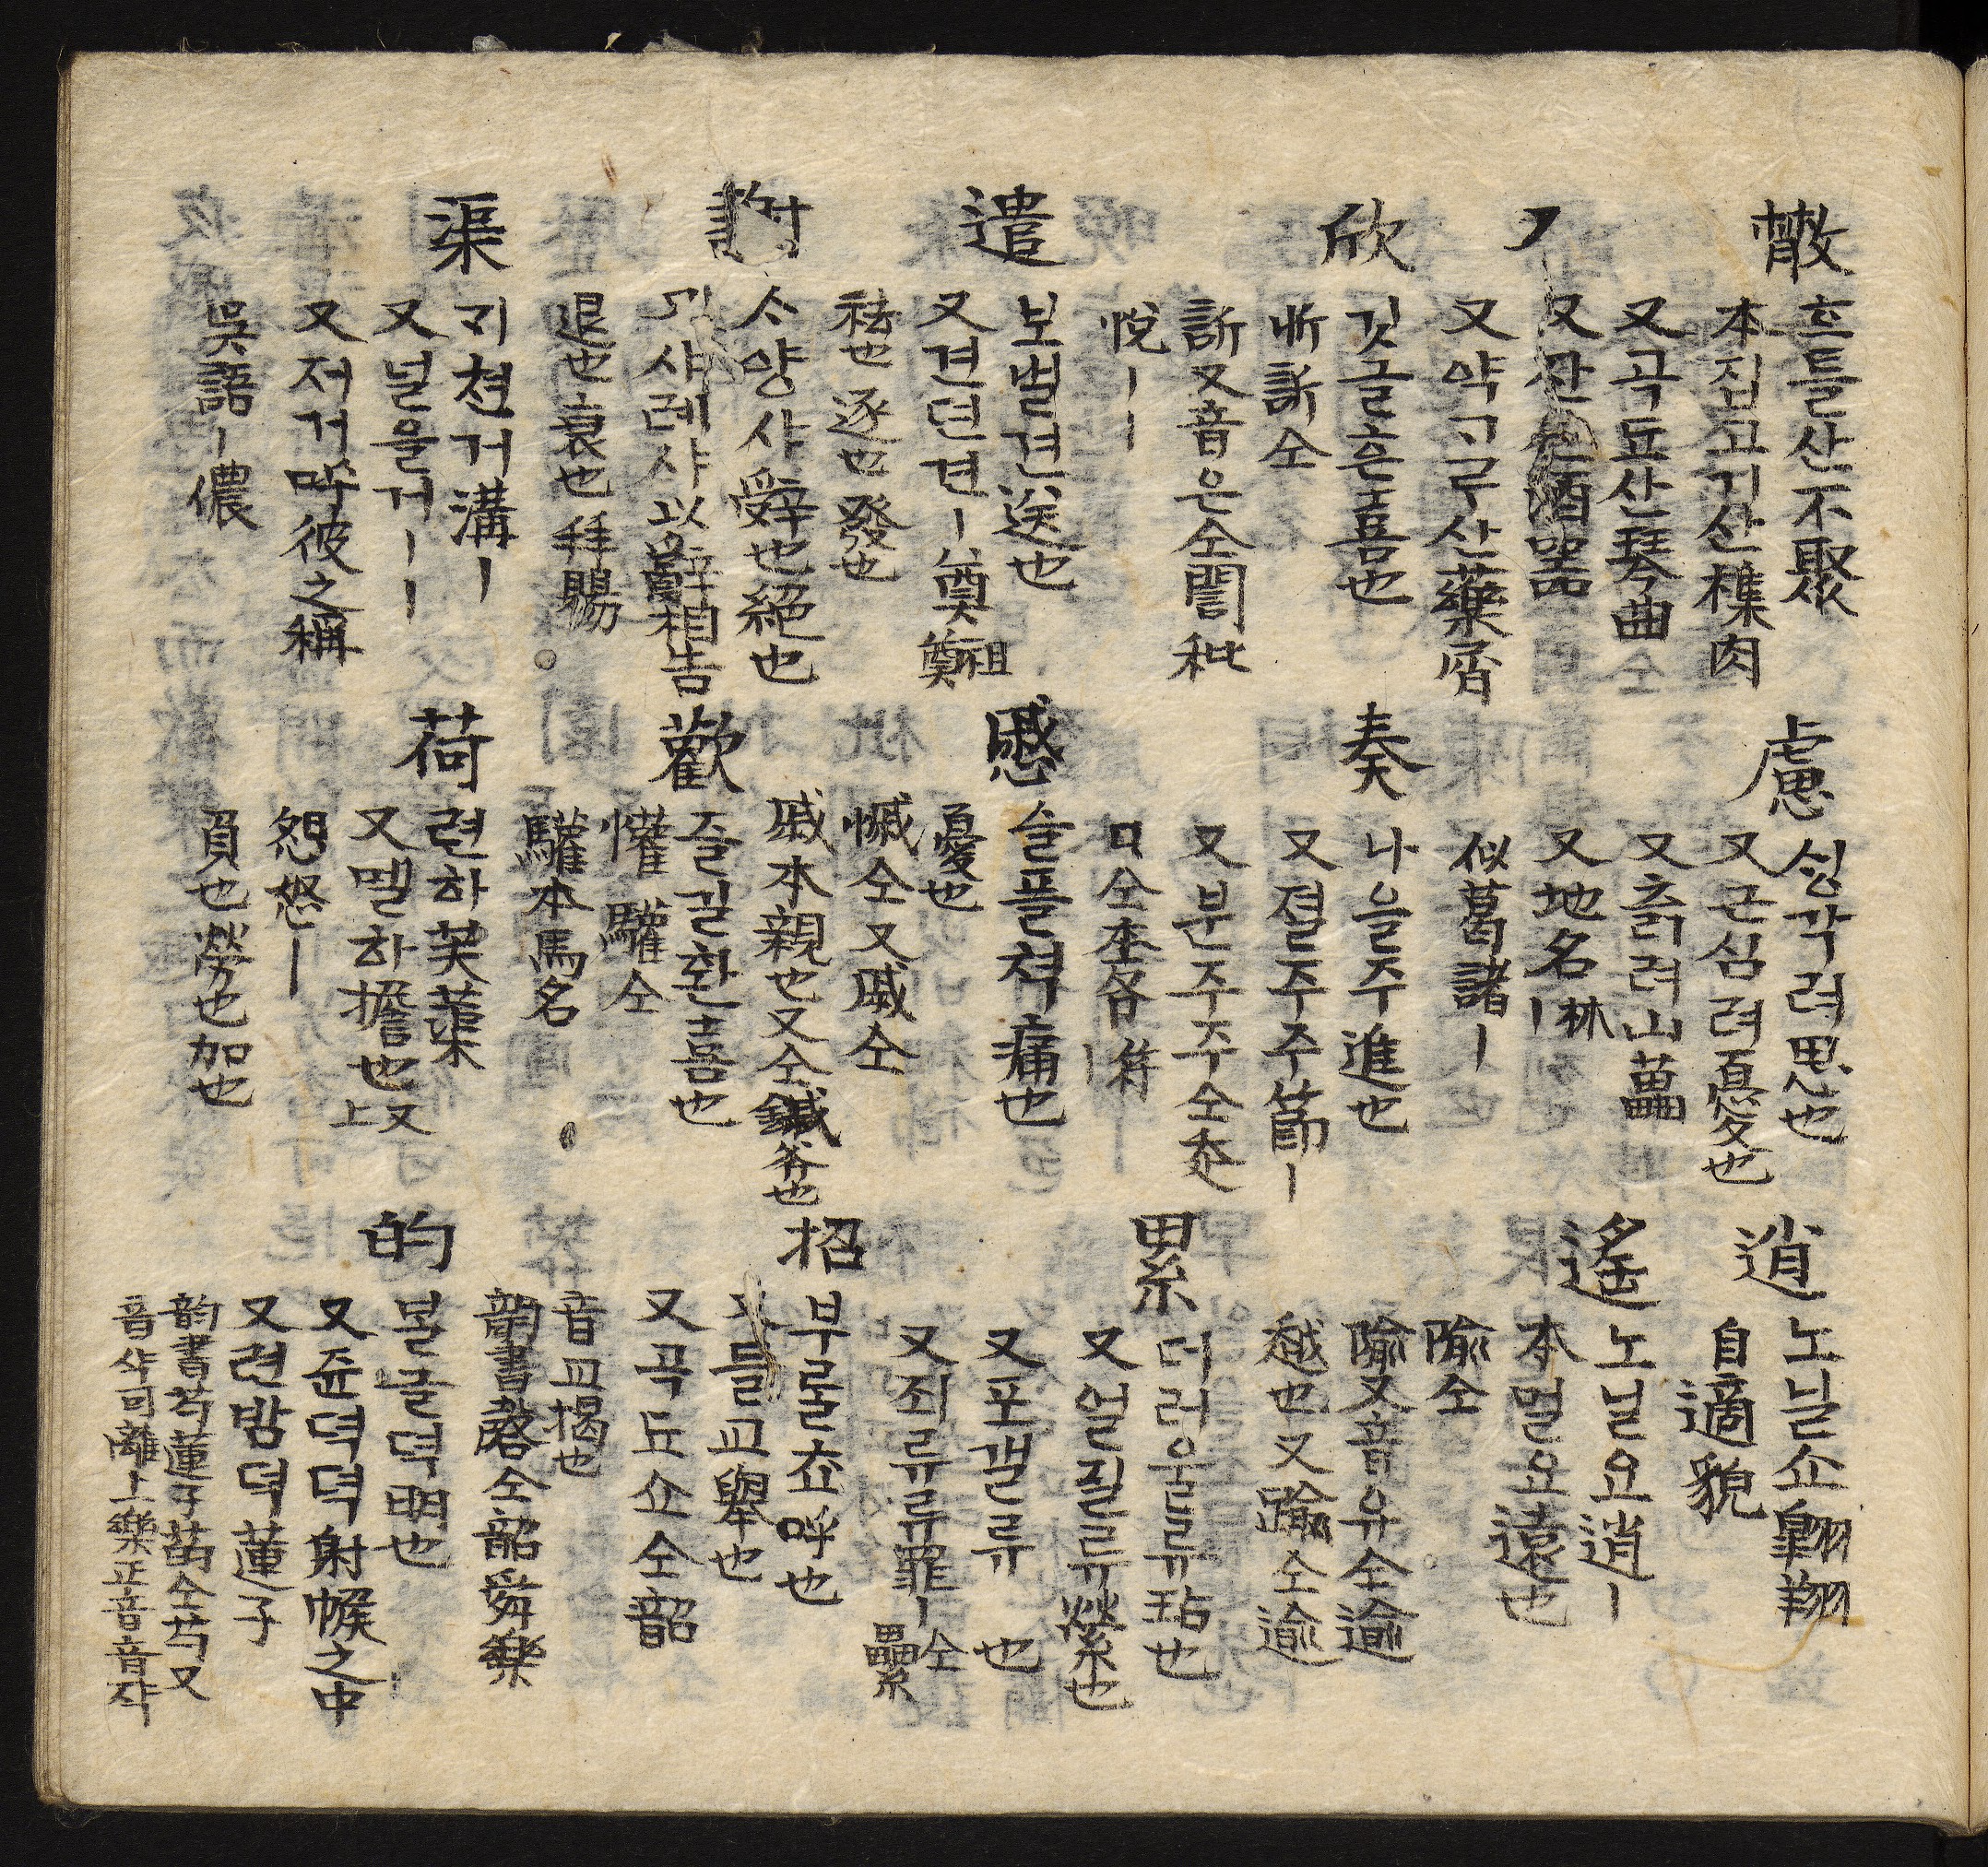 散
흐틀산不聚
本집고기산樵肉
又곡됴산琴曲
又잔산酒器
又약ᄀᆞ로산藥屑
慮
싱각려思也
又근심려憂也
又츩려山藟
又地名林ㅣ
似葛諸ㅣ
逍
노닐쇼翶翔
自適貌
遙
노닐요逍ㅣ
本멀요遠也
隃仝
隃又音유仝逾
越也又踰仝逾
欣
깃글흔喜也
忻訢仝
訢又音은仝誾和
悅ㅣㅣ
奏
나을주進也
又졀주주節ㅣ
又분주주仝走
累
더러울류玷也
又얼킬류縈也
又포갤류也
又죄류류罪ㅣ仝纍
遣
보낼견送也
又견뎐견ㅣ奠祖奠
祛也逐也發也
慼
슬플쳑痛也
憂也
慽仝又戚仝
戚本親也又仝鏚斧也
謝
ᄉᆞ양샤辤也絶也
샤례샤以辭相告
退也衰也拜賜
歡
즐길환喜也
懽驩仝
驩本馬名
招
부를쵸呼也
又들교擧也
又곡됴쇼仝韶
音교揭也
韻書磬仝韶舜樂
渠
ᄀᆡ쳔거溝ㅣ
又널을거ㅣㅣ
又저거呼彼之稱
吳語ㅣ儂
荷
련하芙蕖
又멜하擔也又上
怨怒ㅣ
負也勞也加也
的
볼글뎍明也
又쥰뎍뎍射帿之中
又련밤뎍蓮子
韵書芍蓮子菂仝芍又
音샥可離ㅣ樂正音音쟉